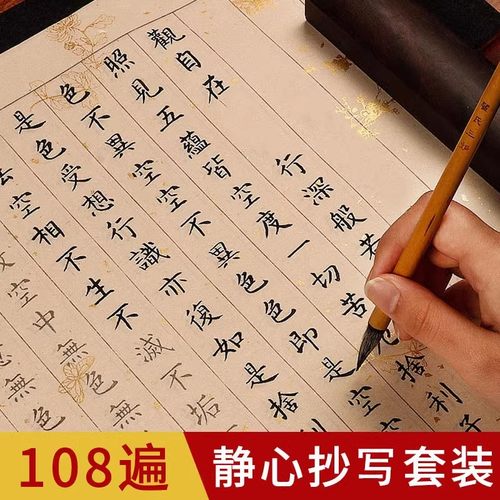 觀自在行深般若
照見五蘊皆空度一切苦捨利子
色不異空空不異色色即是空空
是色受想行識亦復如是捨
空相不生不滅不垢
空中無色無
無色
108遍
静心抄写套装